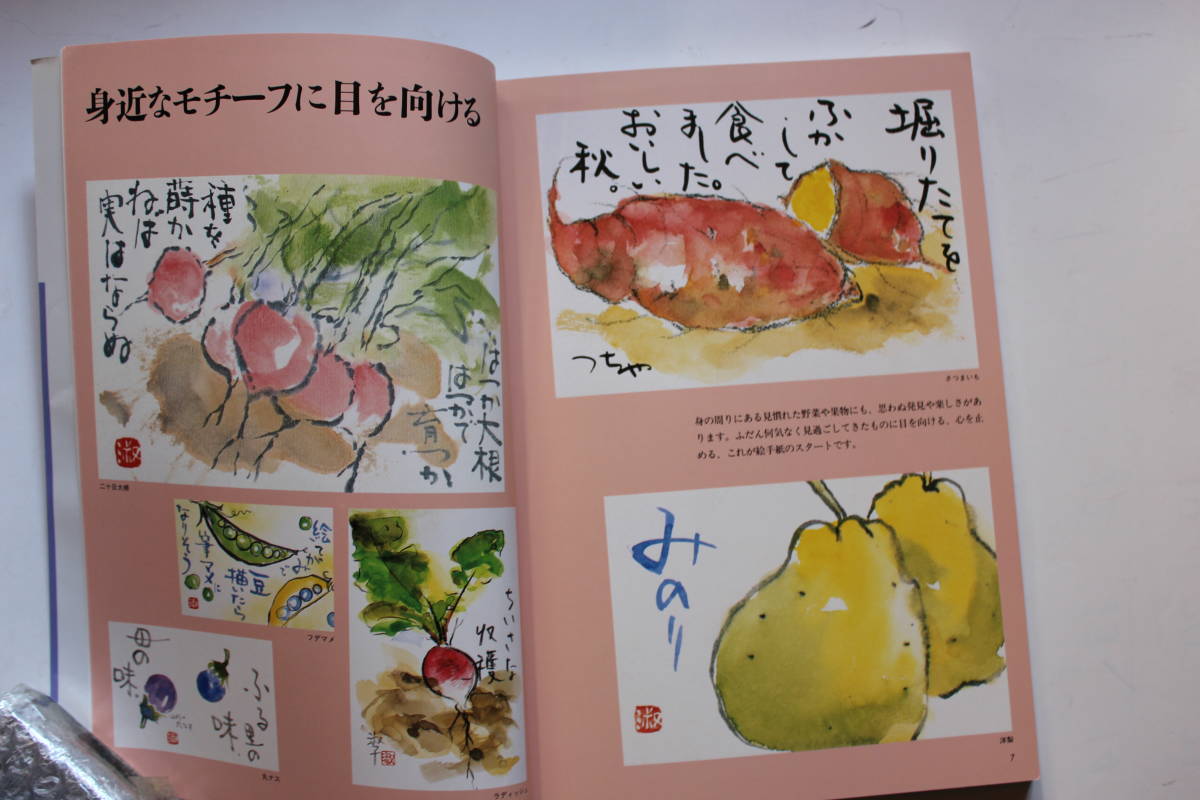 身近なモチーフに目を向ける
種を
蒔か
ねば
実はならぬ
はつか大根
はつかで
育つか
淑
二十日大根
絵てがみで
豆
描いたら
筆マメに
なりそう
フデマメ
ちいさな
収穫
ラディッシュ
母の
味
ふる里の
味
丸ナス
堀りたてを
ふか
して
食べ
ました。
おいしい
秋。
つちや
さつまいも
身の周りにある見慣れた野菜や果物にも、思わぬ発見や楽しさがあ
ります。ふだん何気なく見過ごしてきたものに目を向ける、心を止
める、これが絵手紙のスタートです。
みのり
淑
洋梨
7